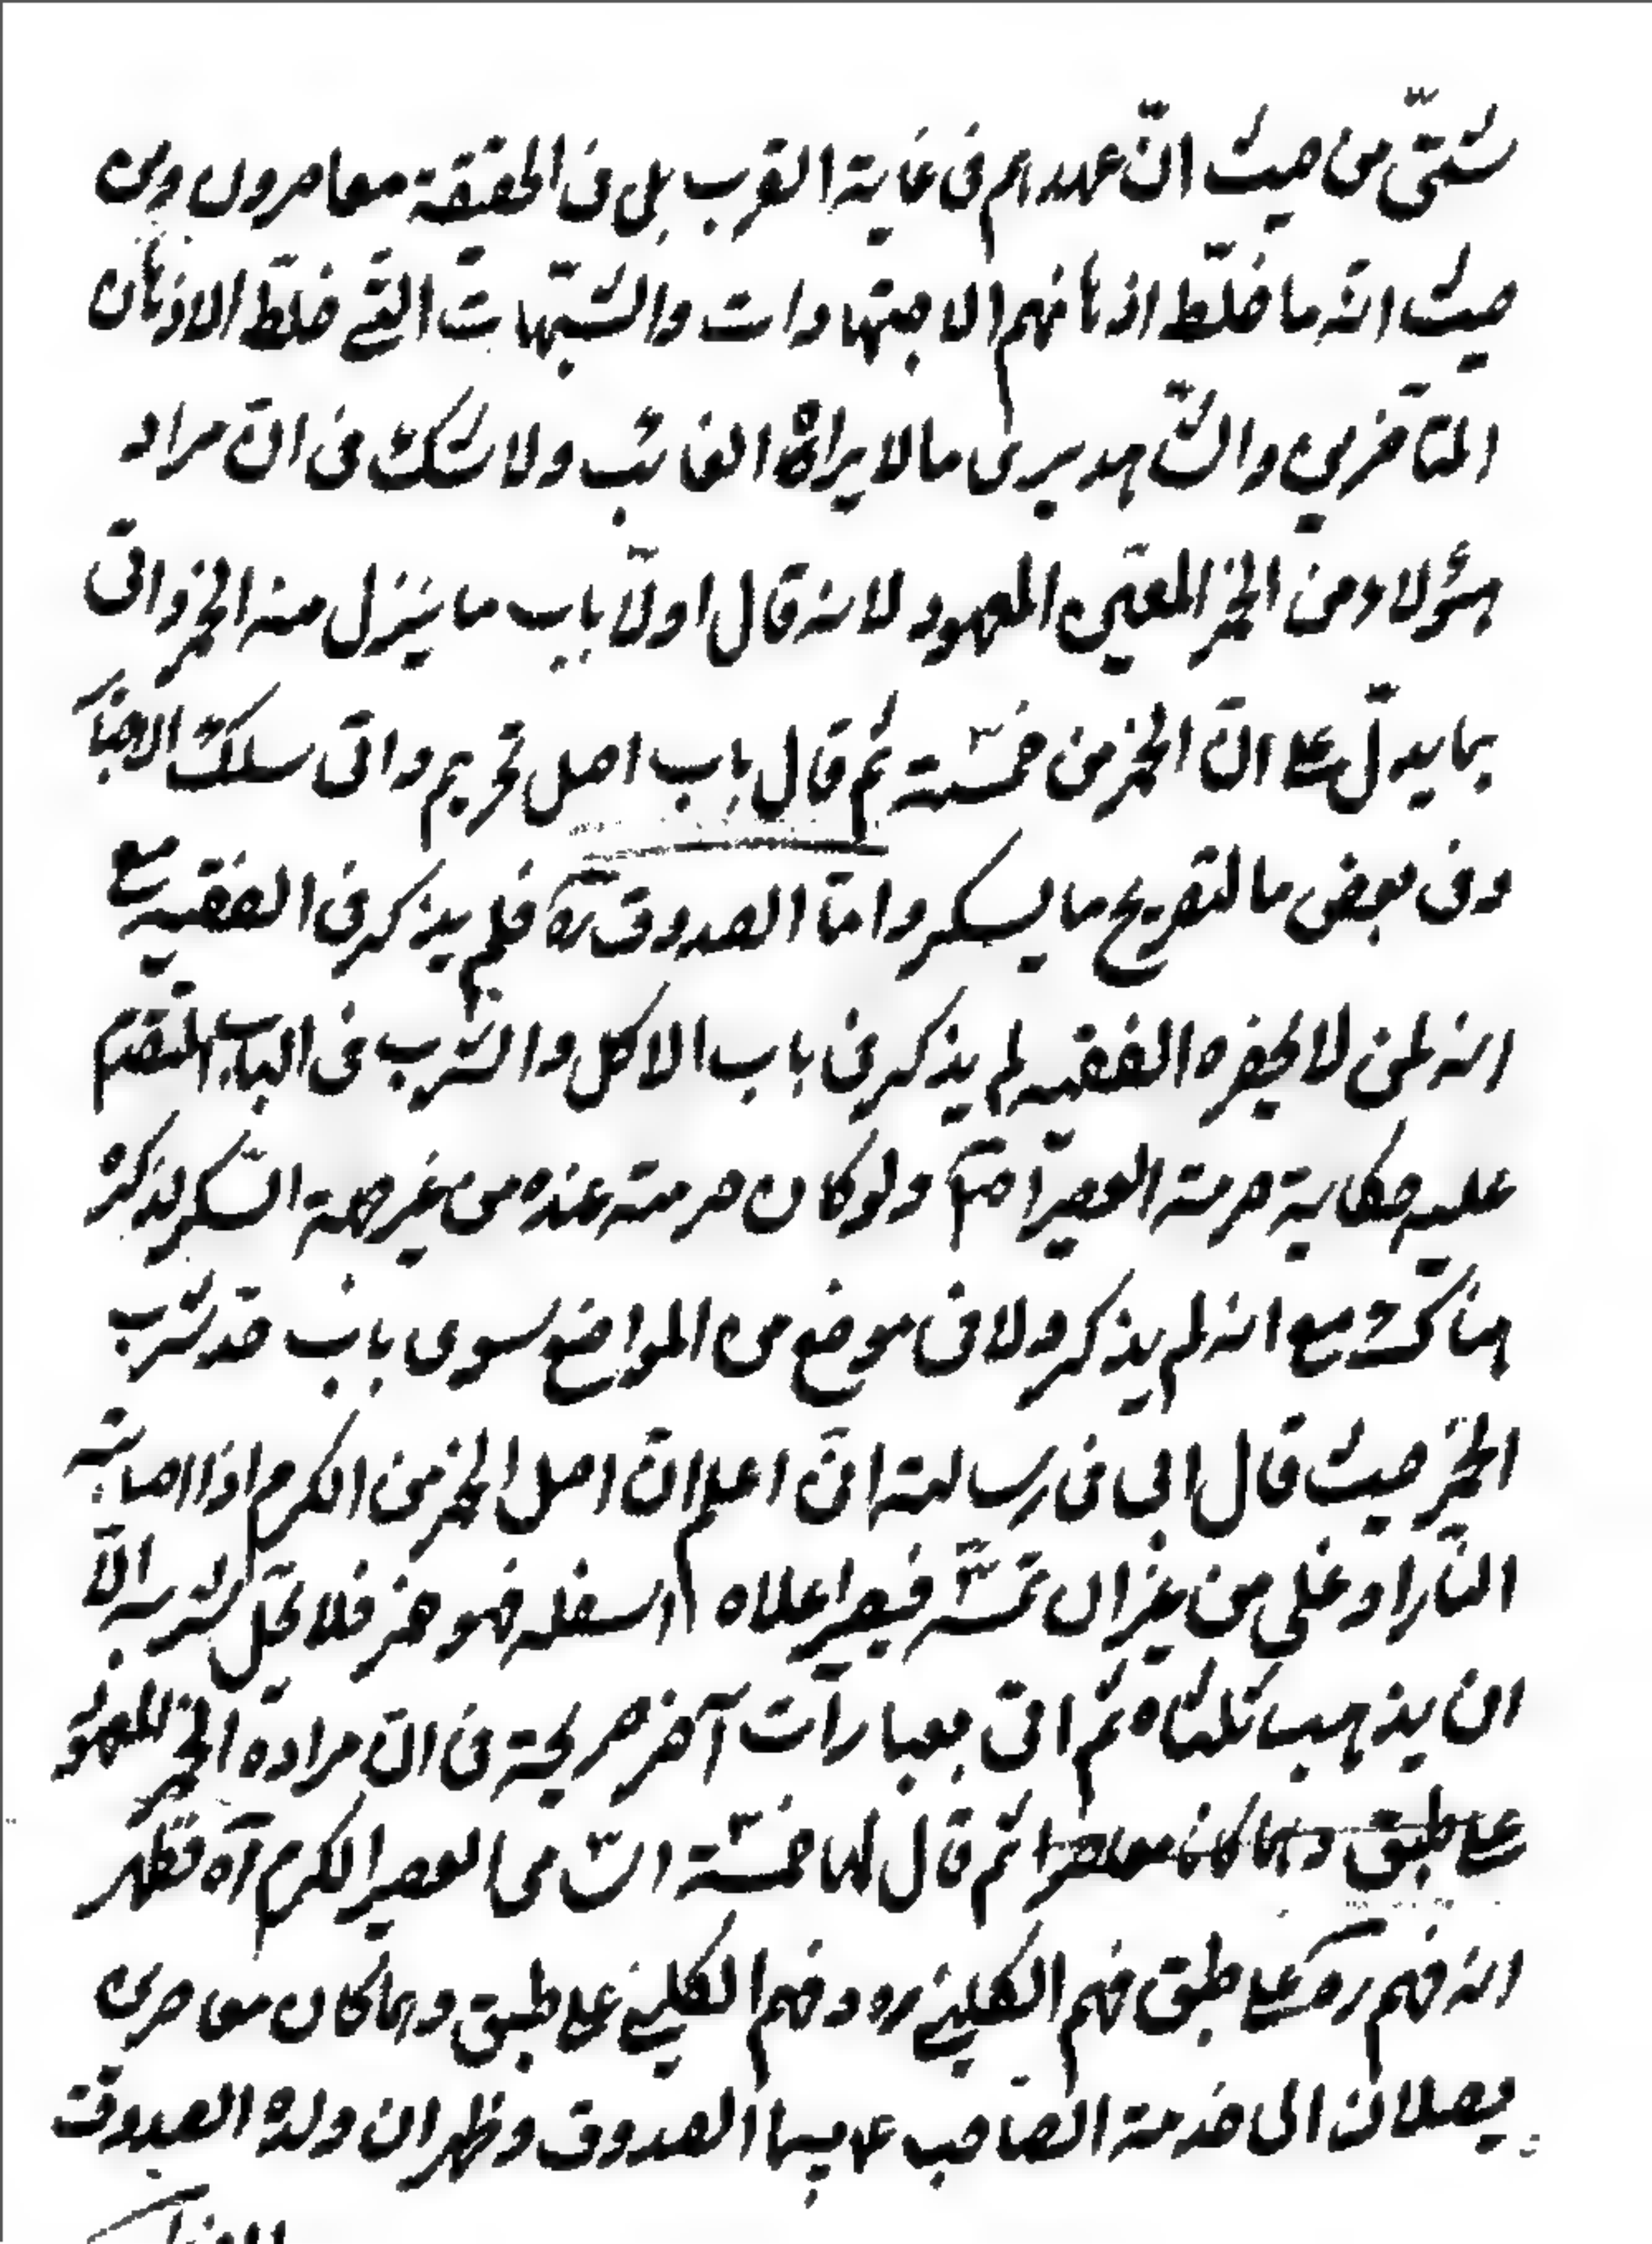 شتّى من حيث انّ عهدهم فى غاية القرب بل فى الحقيقة معاصرون ومن
حيث انّه ما خلّط اذهانهم الاجتهادات والشّبهات الّتى خلّط الاذهان
المتأخرين والشّاهد يرى ما لا يراهُ الغائب ولا شك فى انّ مراد
هؤلاء ومن الخمر المعيّن المعهود لانه قال اولاً باب ما ينزل منه الخمر واتى
بما يدلّ على انّ الخمر من خمسّة ثم قال باب اصل تحريم واتى سلك الاخبار
وفى بعض ما لتصريح ما يسكر وامّا الصدوق ره فلم يذكر فى الفقيه مع
انه لمن لا يحضره الفقيه لم يذكر فى باب الاكل والشرب فى الباب المتقدّم
عليه حكاية حرمة العصير آه ولو كان حرمته عنده من غير جهة السّكر لذكرْ
هناك مع انه لم يذكر ولا فى موضع من المواضع سوى باب حدّ شرب
الخمر حيث قال ابى فى رسالته انّى اعلم انّ اصل الخمر من الكرم اذا اصابته
النّار او غلى من غير ان تمسّه فيصير اعلاه اسفله فهو خمر فلا يحل شربه الّا
ان يذهب ثلثاه ثم اتى بعبارات آخر صريحة فى انّ مراده الخمر المعهود
على طبق وهما كان ثم قال لها خمسّة اسّامى العصير الكرم آه فظهر
انه فهم ره على طبق فهم الكلينى ره وفهم الكلينى على طبق وهما كان معاصرى
يصلان الى خدمة الصّاحب ع سيما الصدوق وظهر ان ولده الصدوق